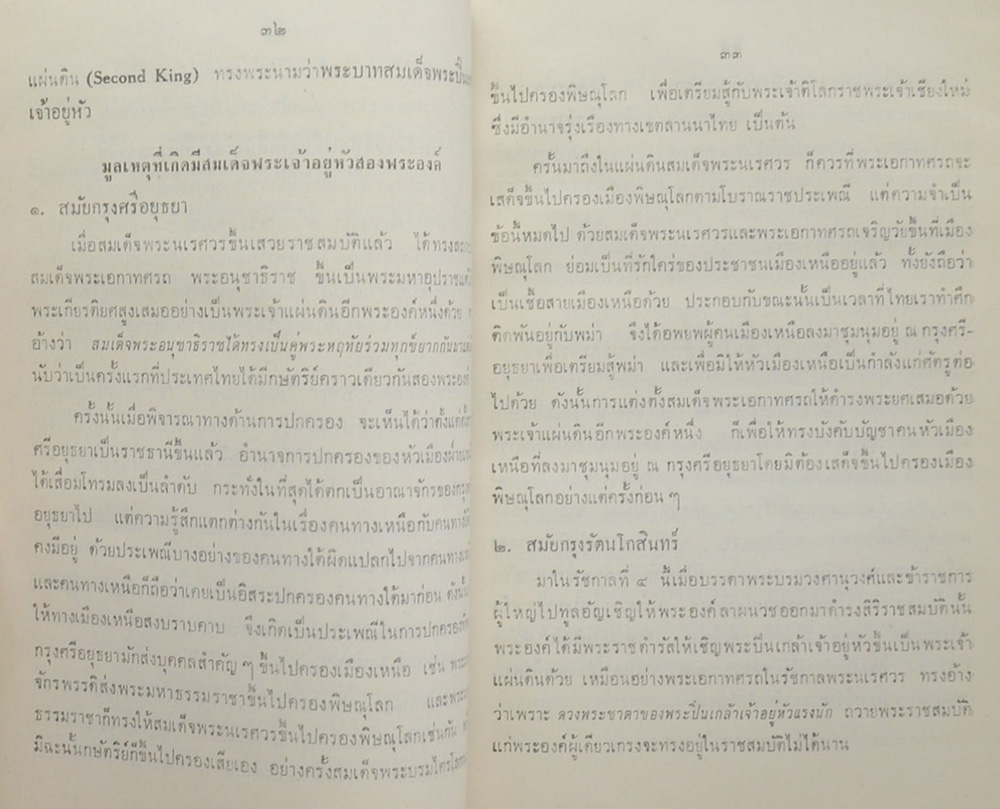 ๓๒
แผ่นดิน (Second King) ทรงพระนามว่าพระบาทสมเด็จพระปิ่น
เจ้าอยู่หัว
มูลเหตุที่เกิดมีสมเด็จพระเจ้าอยู่หัวสองพระองค์
๑. สมัยกรุงศรีอยุธยา
เมื่อสมเด็จพระนเรศวรขึ้นเสวยราชสมบัติแล้ว ได้ทรง
สมเด็จพระเอกาทศรถ พระอนุชาธิราช ขึ้นเป็นพระมหาอุปราช
พระเกียรติยศสูงเสมออย่างเป็นพระเจ้าแผ่นดินอีกพระองค์หนึ่งด้วย
อ้างว่า สมเด็จพระอนุชาธิราชได้ทรงเป็นคู่พระหฤทัยร่วมทุกข์ยากกันมา
นับว่าเป็นครั้งแรกที่ประเทศไทยได้มีกษัตริย์คราวเดียวกันสองพระองค์
ครั้งนั้นเมื่อพิจารณาทางด้านการปกครอง จะเห็นได้ว่าตั้งแต่
ศรีอยุธยาเป็นราชธานีขึ้นแล้ว อำนาจการปกครองของหัวเมือง
ได้เสื่อมโทรมลงเป็นลำดับ กระทั่งในที่สุดได้ตกเป็นอาณาจักรของกรุง
อยุธยาไป แต่ความรู้สึกแตกต่างกันในเรื่องคนทางเหนือกับคนทาง
คงมีอยู่ ด้วยประเพณีบางอย่างของคนทางใต้ผิดแปลกไปจากคนทาง
และคนทางเหนือก็ถือว่าเคยเป็นอิสระปกครองคนทางใต้มาก่อน
ให้ทางเมืองเหนือสงบราบคาบ จึงเกิดเป็นประเพณีในการปกครอง
กรุงศรีอยุธยามักส่งบุคคลสำคัญ ๆ ขึ้นไปครองเมืองเหนือ เช่น พระ
จักรพรรดิส่งพระมหาธรรมราชาขึ้นไปครองพิษณุโลก และพระ
ธรรมราชาก็ทรงให้สมเด็จพระนเรศวรขึ้นไปครองพิษณุโลกเช่นกัน
มิฉะนั้นกษัตริย์ก็ขึ้นไปครองเสียเอง อย่างครั้งสมเด็จพระบรมไตรโลก
๓๓
ขึ้นไปครองพิษณุโลก เพื่อเตรียมสู้กับพระเจ้าติโลกราชพระเจ้าเชียงใหม่
ซึ่งมีอำนาจรุ่งเรืองทางเขตลานนาไทย เป็นต้น
ครั้นมาถึงในแผ่นดินสมเด็จพระนเรศวร ก็ควรที่พระเอกาทศรถจะ
เสด็จขึ้นไปครองเมืองพิษณุโลกตามโบราณราชประเพณี แต่ความจำเป็น
ข้อนี้หมดไป ด้วยสมเด็จพระนเรศวรและพระเอกาทศรถเจริญวัยขึ้นที่เมือง
พิษณุโลก ย่อมเป็นที่รักใคร่ของประชาชนเมืองเหนืออยู่แล้ว ทั้งยังถือว่า
เป็นเชื้อสายเมืองเหนือด้วย ประกอบกับขณะนั้นเป็นเวลาที่ไทยเราทำศึก
ติดพันอยู่กับพม่า จึงได้อพยพผู้คนเมืองเหนือลงมาชุมนุมอยู่ ณ กรุงศรี-
อยุธยาเพื่อเตรียมสู้พม่า และเพื่อมิให้หัวเมืองเหนือเป็นกำลังแก่ศัตรูต่อ
ไปด้วย ดังนั้นการแต่งตั้งสมเด็จพระเอกาทศรถให้ดำรงพระยศเสมอด้วย
พระเจ้าแผ่นดินอีกพระองค์หนึ่ง ก็เพื่อให้ทรงบังคับบัญชาคนหัวเมือง
เหนือที่ลงมาชุมนุมอยู่ ณ กรุงศรีอยุธยาโดยมิต้องเสด็จขึ้นไปครองเมือง
พิษณุโลกอย่างแต่ครั้งก่อน ๆ
๒. สมัยกรุงรัตนโกสินทร์
มาในรัชกาลที่ ๔ นี้เมื่อบรรดาพระบรมวงศานุวงศ์และข้าราชการ
ผู้ใหญ่ไปทูลอัญเชิญให้พระองค์ลาผนวชออกมาดำรงสิริราชสมบัตินั้น
พระองค์ได้มีพระราชดำรัสให้เชิญพระปิ่นเกล้าเจ้าอยู่หัวขึ้นเป็นพระเจ้า
แผ่นดินด้วย เหมือนอย่างพระเอกาทศรถในรัชกาลพระนเรศวร ทรงอ้าง
ว่าเพราะ ดวงพระชาตาของพระปิ่นเกล้าเจ้าอยู่หัวแรงนัก ถวายพระราชสมบัติ
แก่พระองค์ผู้เดียวเกรงจะทรงอยู่ในราชสมบัติไม่ได้นาน